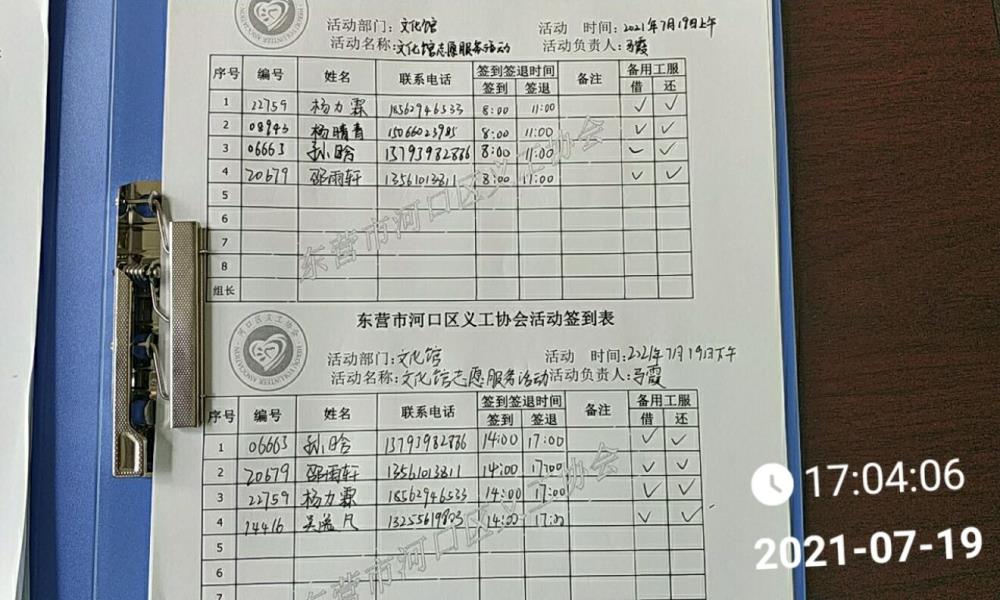 活动部门：文化馆 活动 时间：2021年7月19日上午
活动名称：文化馆志愿服务活动 活动负责人：马霞
序号 编号 姓名 联系电话 签到签退时间 备注 备用工服
签到 签退 借 还
1 22759 杨力霖 18562946533 8:00 11:00 ✓ ✓
2 08943 杨晴青 15066023985 8:00 11:00 ✓ ✓
3 06663 孙晗 13793982886 8:00 11:00 ✓ ✓
4 20679 邵雨轩 13561013811 8:00 11:00 ✓ ✓
5
6
7
8
组长
东营市河口区义工协会
东营市河口区义工协会活动签到表
河口区义工协会
活动部门：文化馆 活动 时间：2021年7月19日下午
活动名称：文化馆志愿服务活动 活动负责人：马霞
序号 编号 姓名 联系电话 签到签退时间 备注 备用工服
签到 签退 借 还
1 06663 孙晗 13793982886 14:00 17:00 ✓ ✓
2 20679 邵雨轩 13561013811 14:00 17:00 ✓ ✓
3 22759 杨力霖 18562946533 14:00 17:00 ✓ ✓
4 14416 吴 凡 14:00 17:00 ✓ ✓
5
6
7
东营市河口区义工协会
17:04:06
2021-07-19